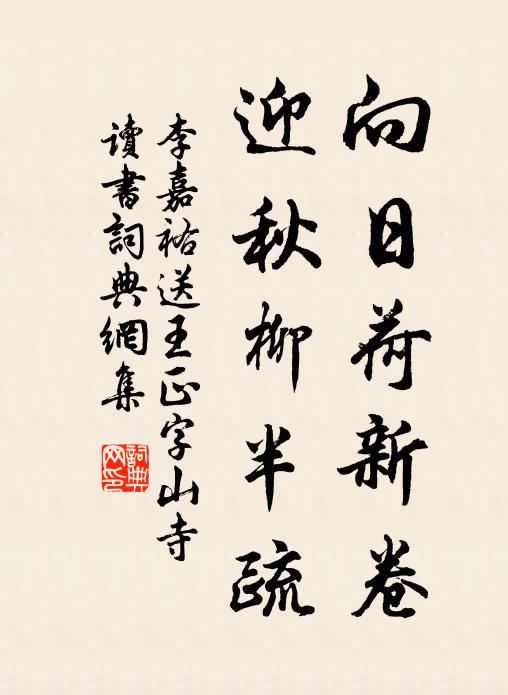 向日荷新卷
迎秋柳半疏
李嘉祐送王正字山寺
讀書詞典網集
詞典
网印